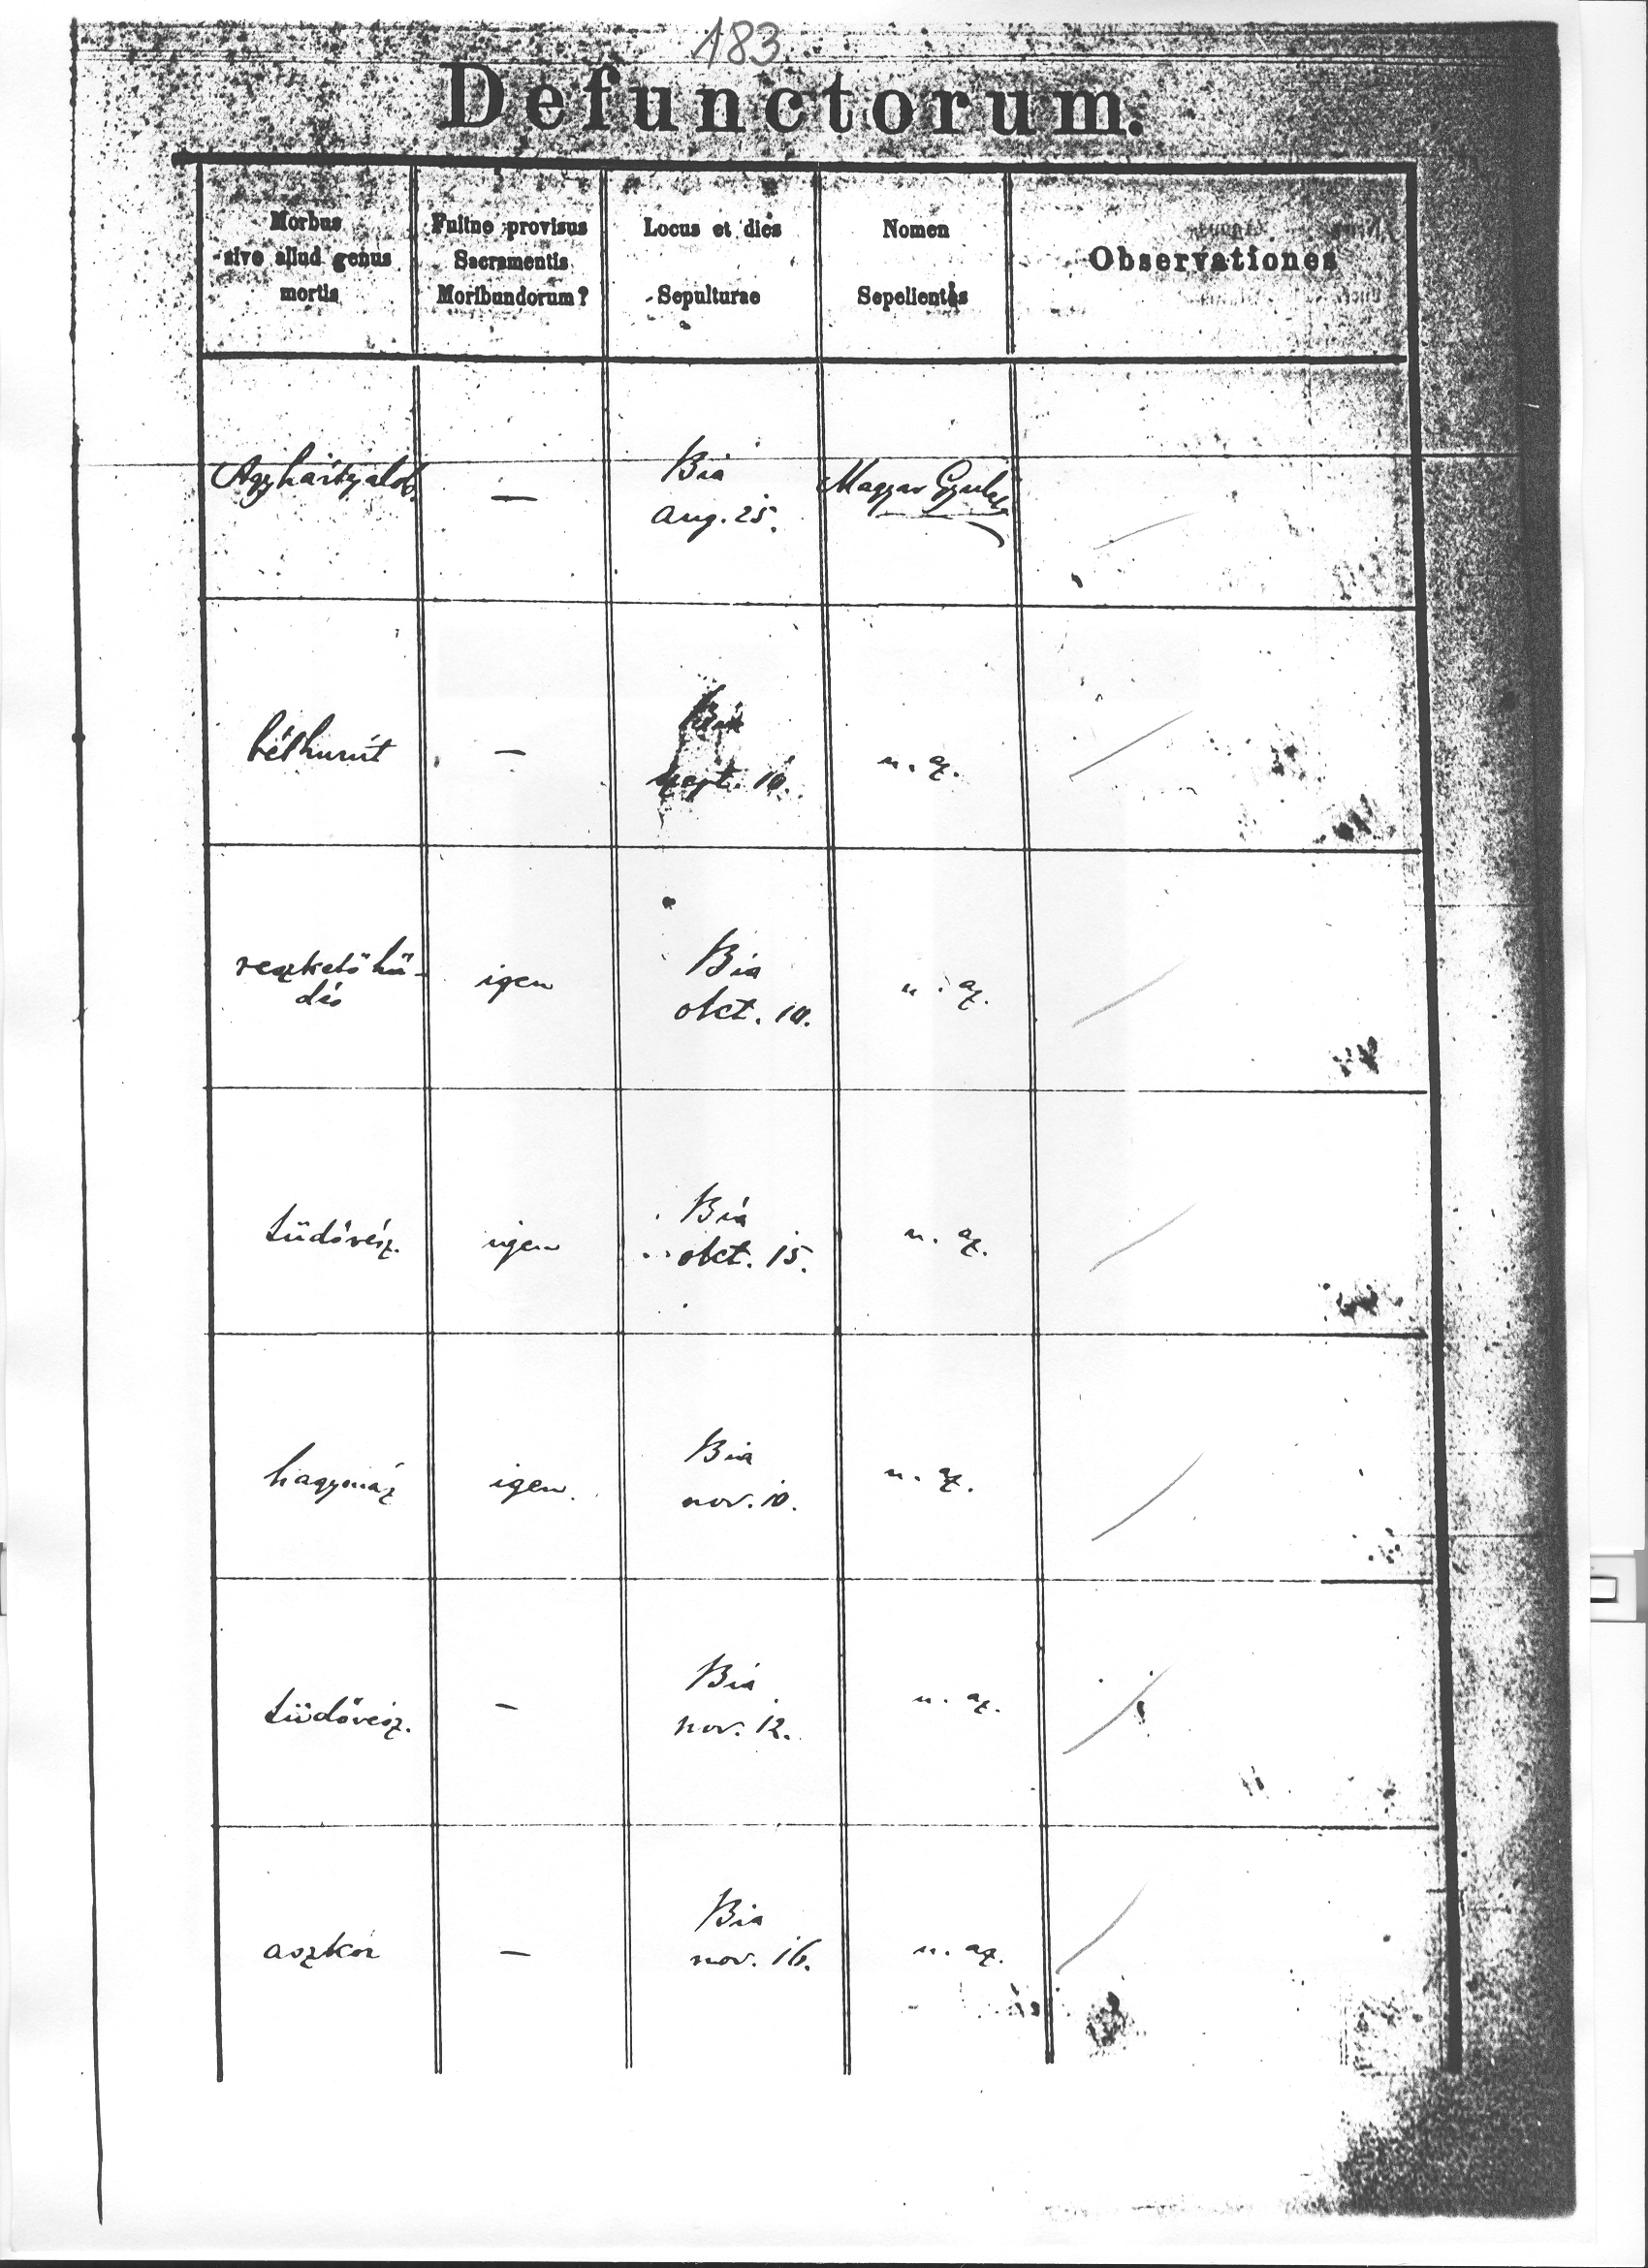 183
Defunctorum.
Morbus
sive aliud genus
mortis
Fuitne provisus
Sacramentis
Moribundorum?
Locus et dies
Sepulturae
Nomen
Sepelientis
Observationes
Agyhártyalob.
—
Bia
aug. 25.
Magyar Gyula
bélhurut
—
Bia
szept. 10.
u. az.
reszkető hű-
dés
igen
Bia
okt. 10.
u. az.
tüdővész.
igen
Bia
okt. 15.
u. az.
hagymáz
igen.
Bia
nov. 10.
u. az.
tüdővész.
—
Bia
nov. 12.
u. az.
aszkór
—
Bia
nov. 16.
u. az.